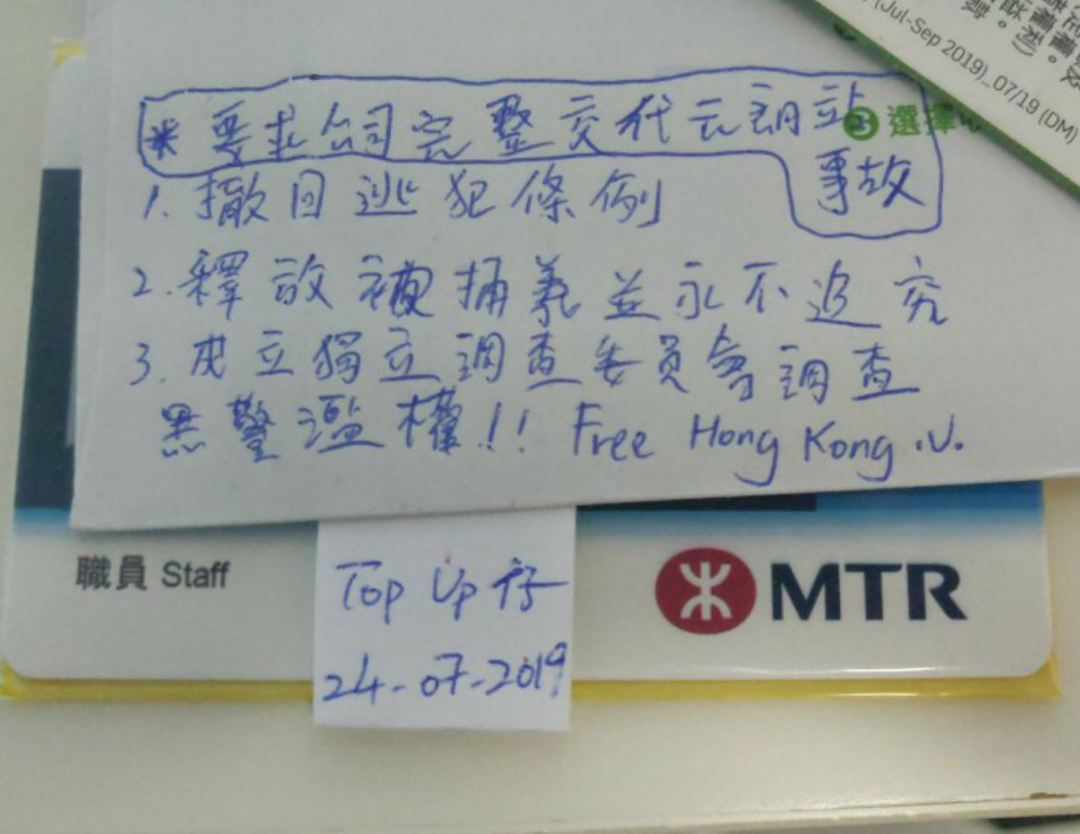 * 要求公司完整交代元朗站
事故
1. 撤回逃犯條例
2. 釋放被捕義並永不追究
3. 成立獨立調查委員會調查
黑警濫權!! Free Hong Kong
選擇
(Jul-Sep 2019)_07/19 (DM)
職員 Staff
MTR
Top Up 仔
24-07-2019